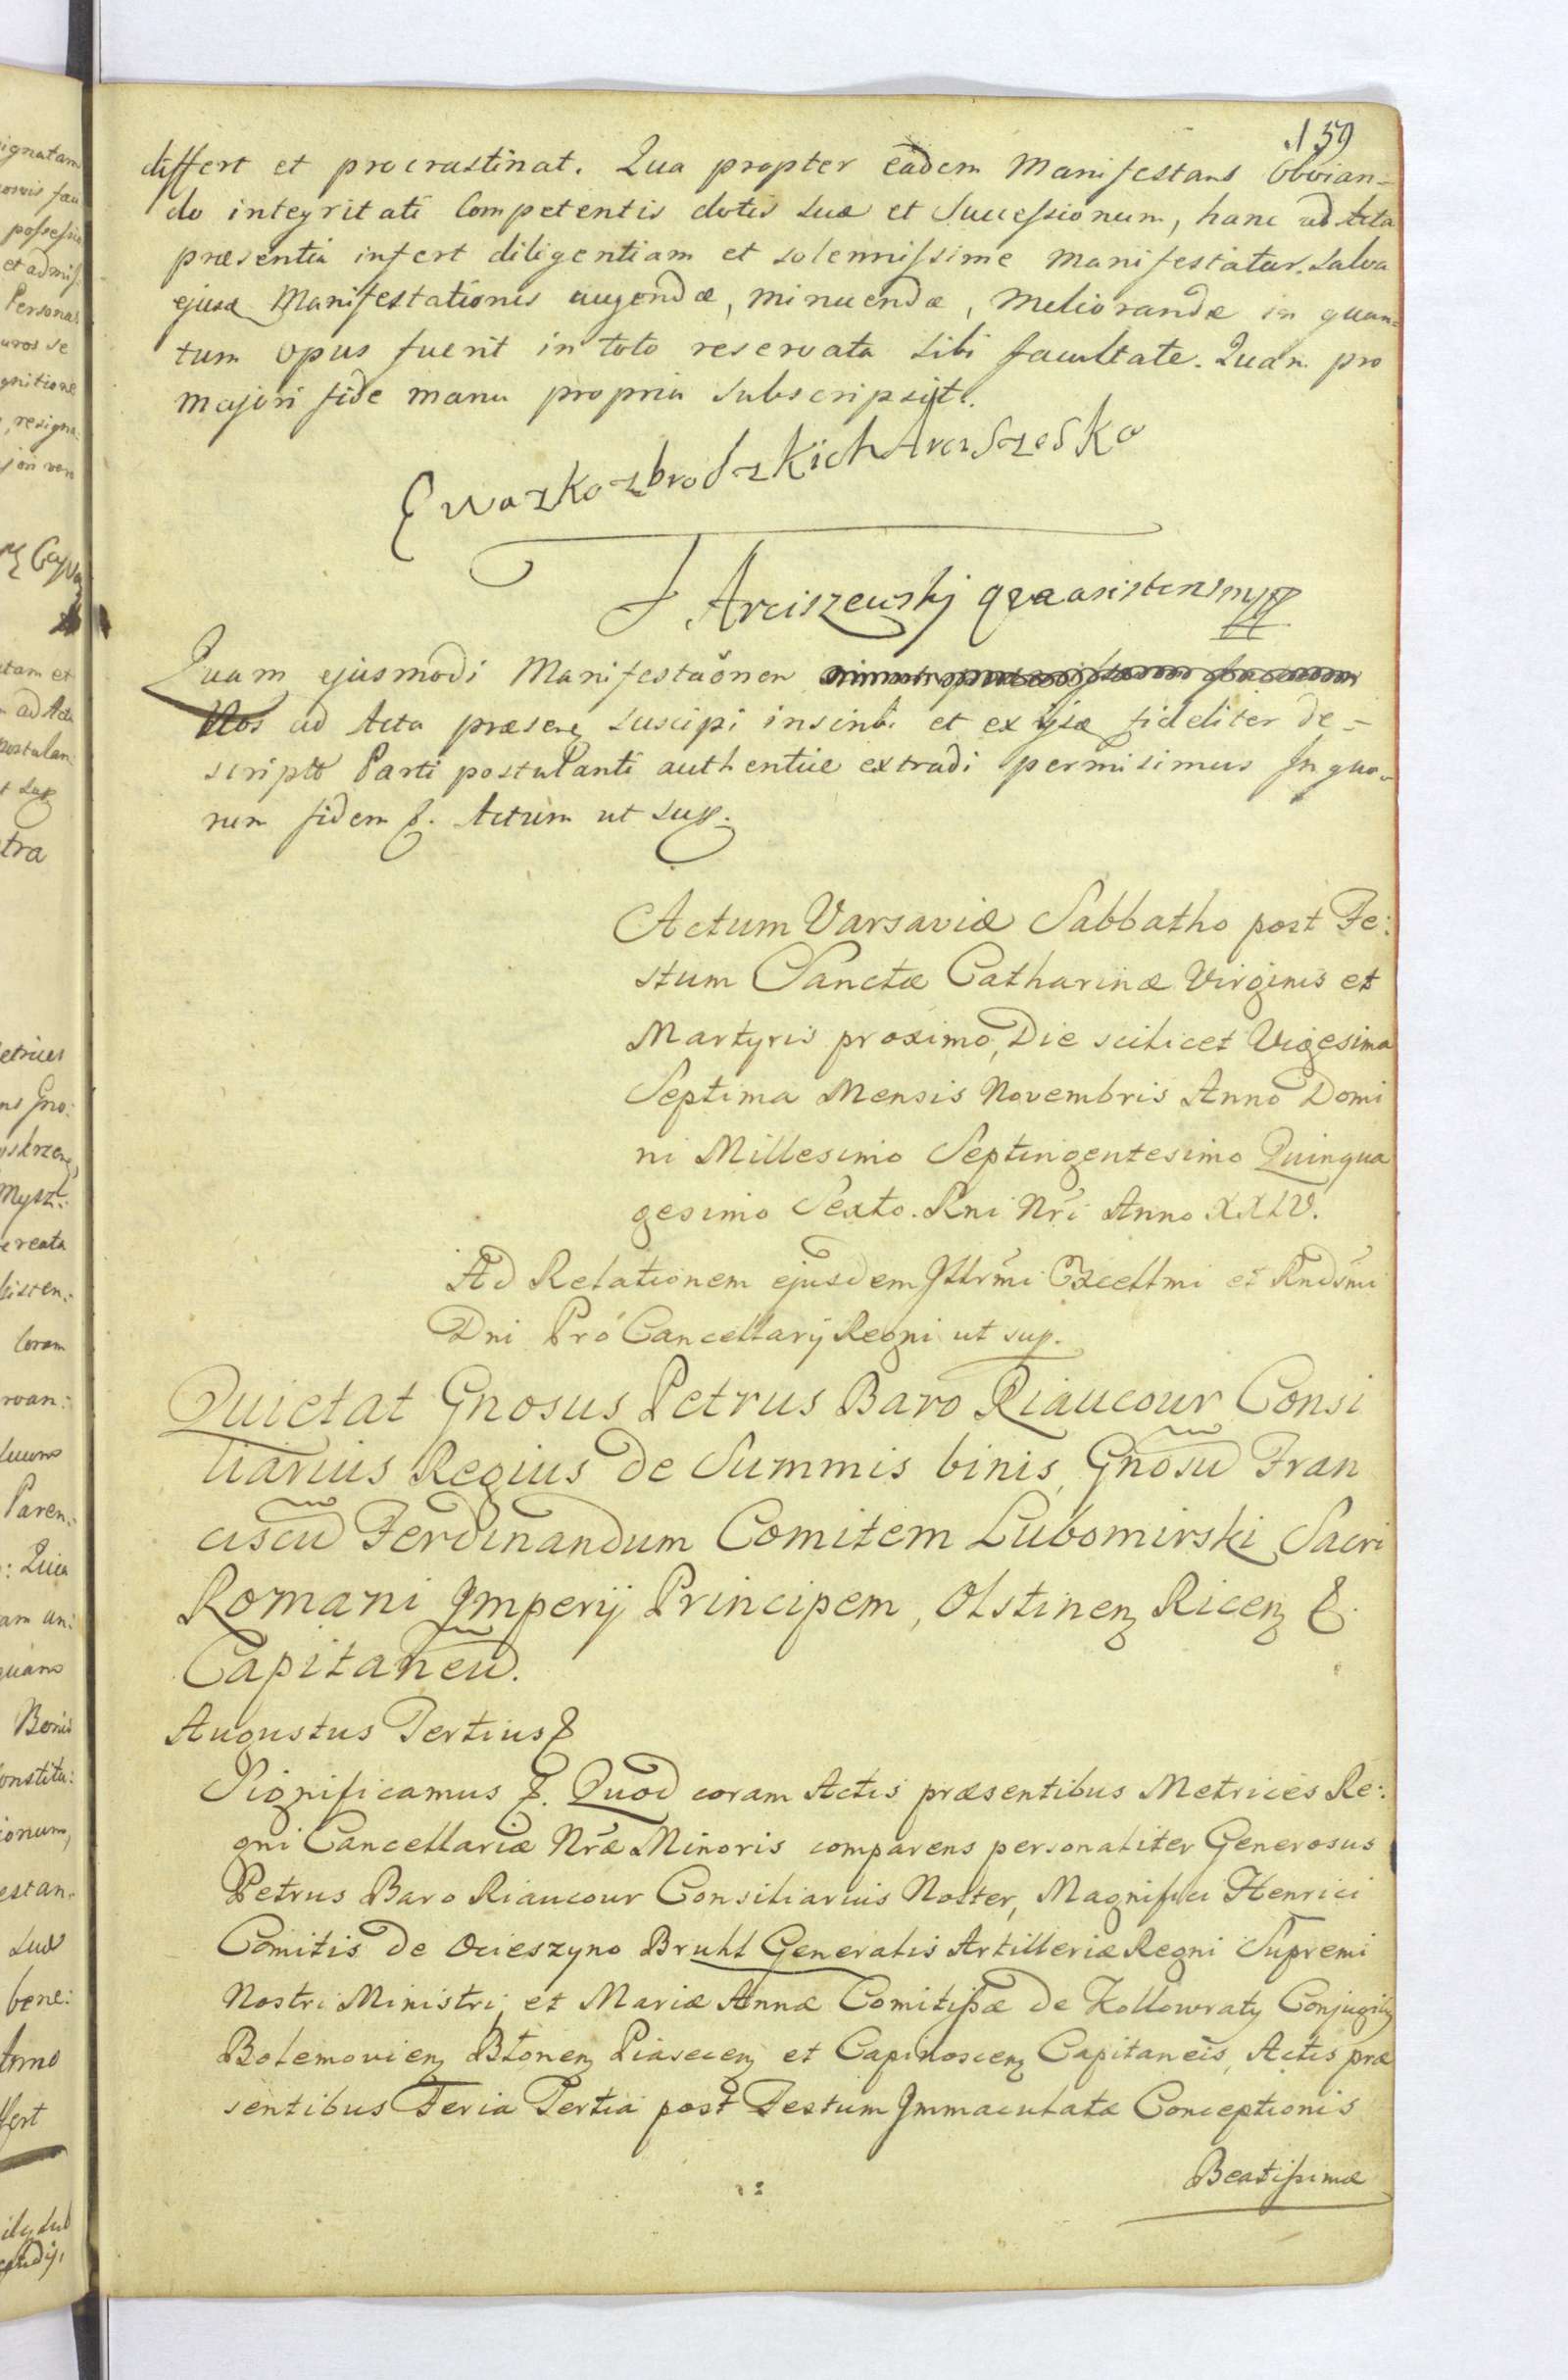 159
differt et procrastinat. Qua propter eadem Manifestans Obvian-
do integritati Competentis dotis suæ et Successionum, hanc ad Acta
præsentia infert diligentiam et solemnissime manifestatur. Salva
ejusd Manifestationis augendæ, minuendæ, Meliorandæ in quan=
tum opus fuerit in toto reservata sibi facultate. Quam pro
majori fide manu propria subscripsit.
Ewa z Kozbrodzkich Arciszeska
J Arciszewskj qva asistens mpp
Quam ejusmodi Manifestaõnem
Nos ad Acta præsenƷ suscipi inscribi et ex ijsd fideliter de-
scripto Parti postulanti authentice extradi permisimus In quo-
rum fidem &. Actum ut sup.
Actum Varsaviæ Sabbatho post Fe:
stum Sanctæ Catharinæ Virginis et
Martyris proximo, Die scilicet Vigesima
Septima Mensis Novembris Anno Domi
ni Millesimo Septingentesimo Quinqua
gesimo Sexto. Rni Nri Anno XXIV.
Ad Relationem ejusdem Illrmi Excellmi et Rndsmi
Dni Pro Cancellarij Regni ut sup.
Quietat Gnosus Petrus Baro Riaucour Consi
liarius Regius de Summis binis, Gnosũ Fran
ciscũ Ferdinandum Comitem Lubomirski Sacri
Romani Imperij Principem, OlstinenƷ RicenƷ &.
Capitaneũ.
Augustus Tertius &
Significamus &. Quod coram Actis præsentibus Metrices Re:
gni Cancellariæ Nræ Minoris comparens personaliter Generosus
Petrus Baro Riaucour Consiliarius Noster, Magnifici Henrici
Comitis de Ocieszyno Bruhl Generalis Artilleriæ Regni Supremi
Nostri Ministri, et Mariæ Annæ Comitissæ de Kollowraty Conjugũ
BolemovienƷ BlonenƷ PiasecenƷ et CapinoscenƷ Capitaneis, Actis præ
sentibus Feria Tertia post Festum Immaculatæ Conceptionis
Beatissimæ